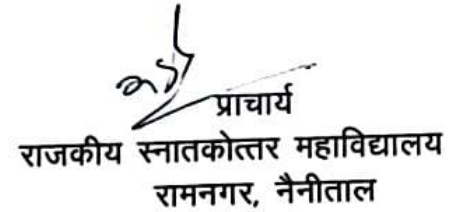 प्राचार्य
राजकीय स्नातकोत्तर महाविद्यालय
रामनगर, नैनीताल